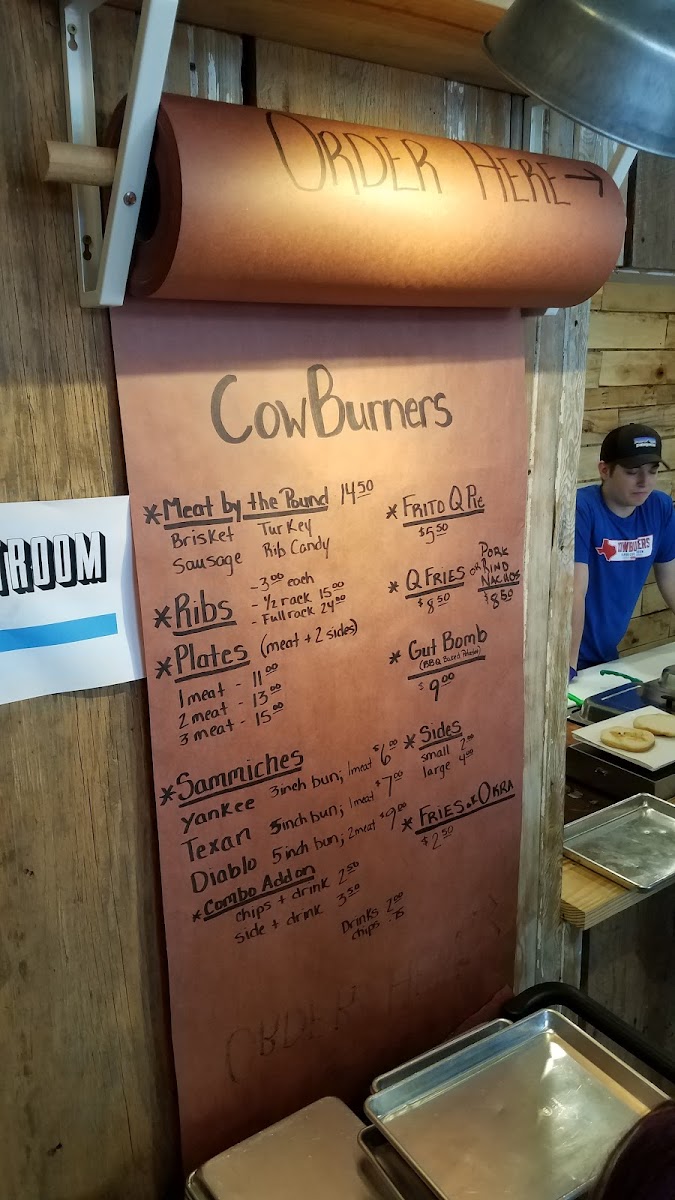 ORDER HERE →
COWBURNERS
* Meat by the Pound 14.50
Brisket Turkey
Sausage Rib Candy
* Ribs - 3.00 each
- 1/2 rack 15.00
- Full rack 24.00
* Plates (meat + 2 sides)
1 meat - 11.00
2 meat - 13.00
3 meat - 15.00
* Sammiches
Yankee 3inch bun; 1meat $6.00
Texan 5inch bun; 1meat $7.00
Diablo 5inch bun; 2meat $9.00
* Combo Add on
chips + drink 2.50
side + drink 3.50
Drinks 2.00
chips .75
* FRITO Q PIE
$5.50
* Q FRIES OR PORK RIND NACHOS
$8.50 $8.50
* Gut Bomb
(BBQ Baked Potato)
$9.00
* Sides
small 2.00
large 4.00
* FRIES or OKRA
$2.50
TROOM
ORDER HERE